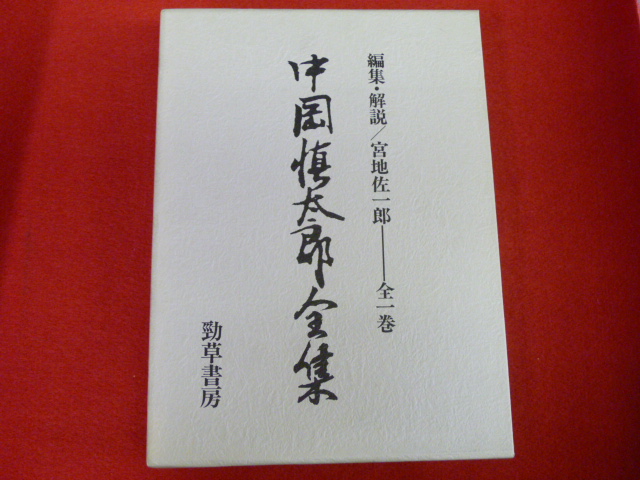 編集・解説/宮地佐一郎――全一巻
中岡慎太郎全集
勁草書房